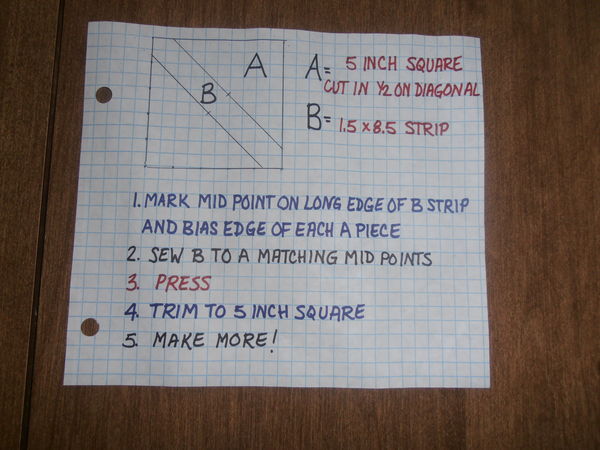 A
B
A= 5 INCH SQUARE
CUT IN 1/2 ON DIAGONAL
B= 1.5 x 8.5 STRIP
1. MARK MID POINT ON LONG EDGE OF B STRIP
AND BIAS EDGE OF EACH A PIECE
2. SEW B TO A MATCHING MID POINTS
3. PRESS
4. TRIM TO 5 INCH SQUARE
5. MAKE MORE!